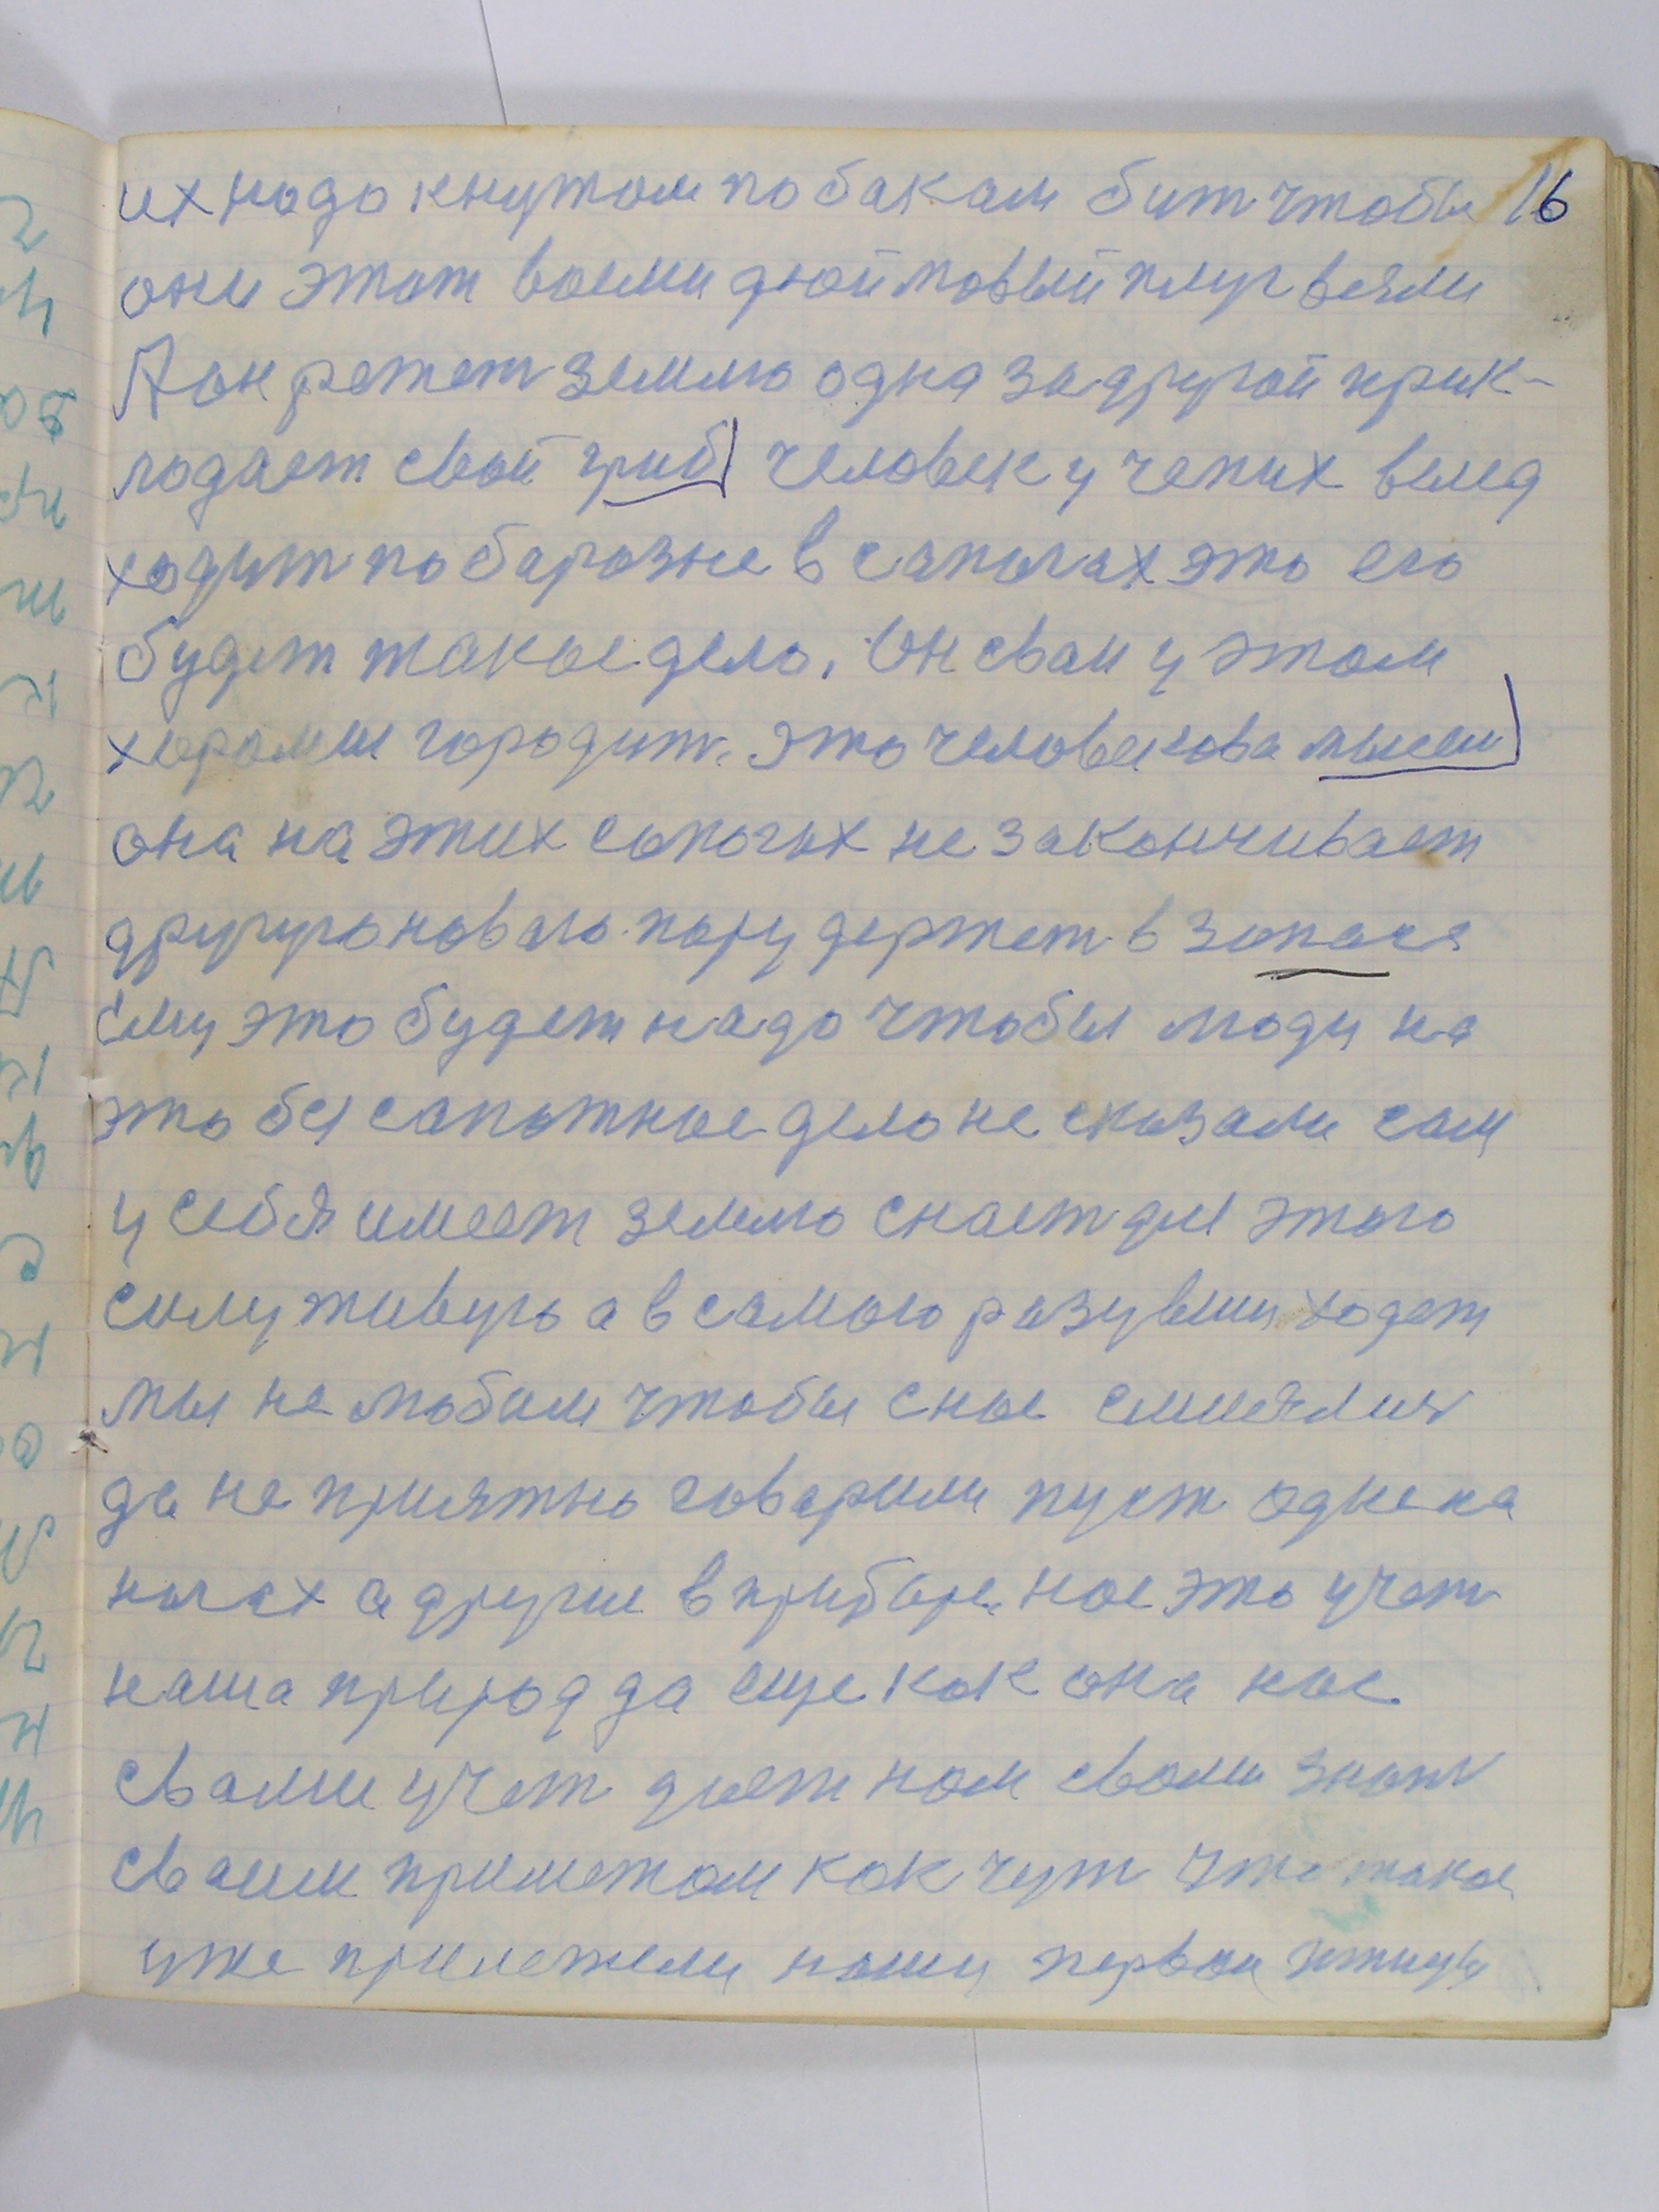 их надо кнутом по бакам бит чтобы 16
они этот восми дюймовый плуг везли
А он режет землю одна за другой прик-
лодает свой гриб человек у чепих вслед
ходит по барозне в сапогах это его
будет такое дело, Он сваи у этом
хоромы городит. это человекова мысли
она на этих сапогах не закончивает
другую новаю пару держет в запася
ему это будет надо чтобы люди на
это бес сапожное дело не сказали сам
у себя имеет землю снает для этого
силу живую а в самого разувши ходет
мы не любим чтобы снас смиялися
да не приятно говарили пуст одне на
ногах а другие в прибаре нас это учет
наша природ да еще как она нас
сваими учет дает нам сваим знат
сваим приметам как чут что такое
уже прилетели наши первои птицы